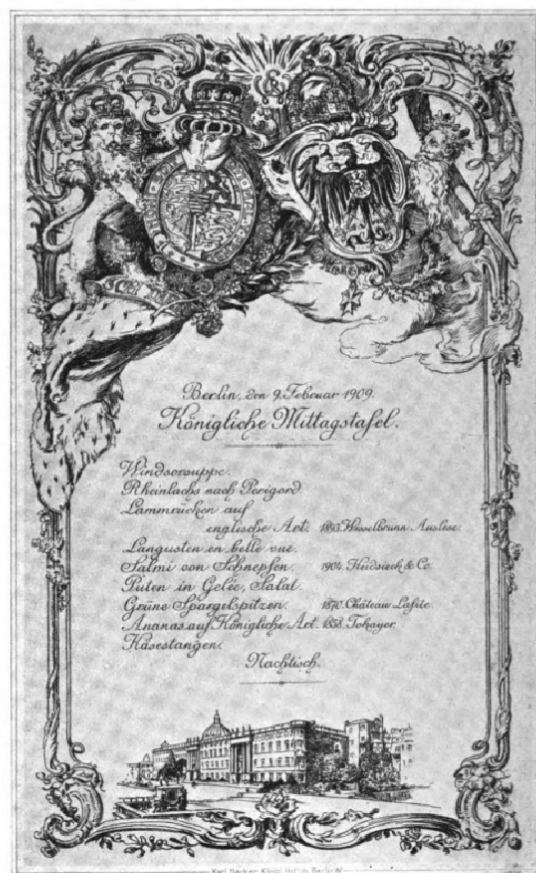 Berlin, den 9. Februar 1909.
Königliche Mittagstafel.
Windsorsuppe.
Rheinlachs nach Perigord
Lammrücken auf
englische Art. 1893. Wesselbrunn Auslese.
Langusten en belle vue.
Salmi von Schnepfen. 1904. Heidsieck & Co.
Puten in Gelée, Salat.
Grüne Spargelspitzen. 1870. Château Lafite.
Ananas auf Königliche Art. 1858. Tokayer.
Käsestangen.
Nachtisch.